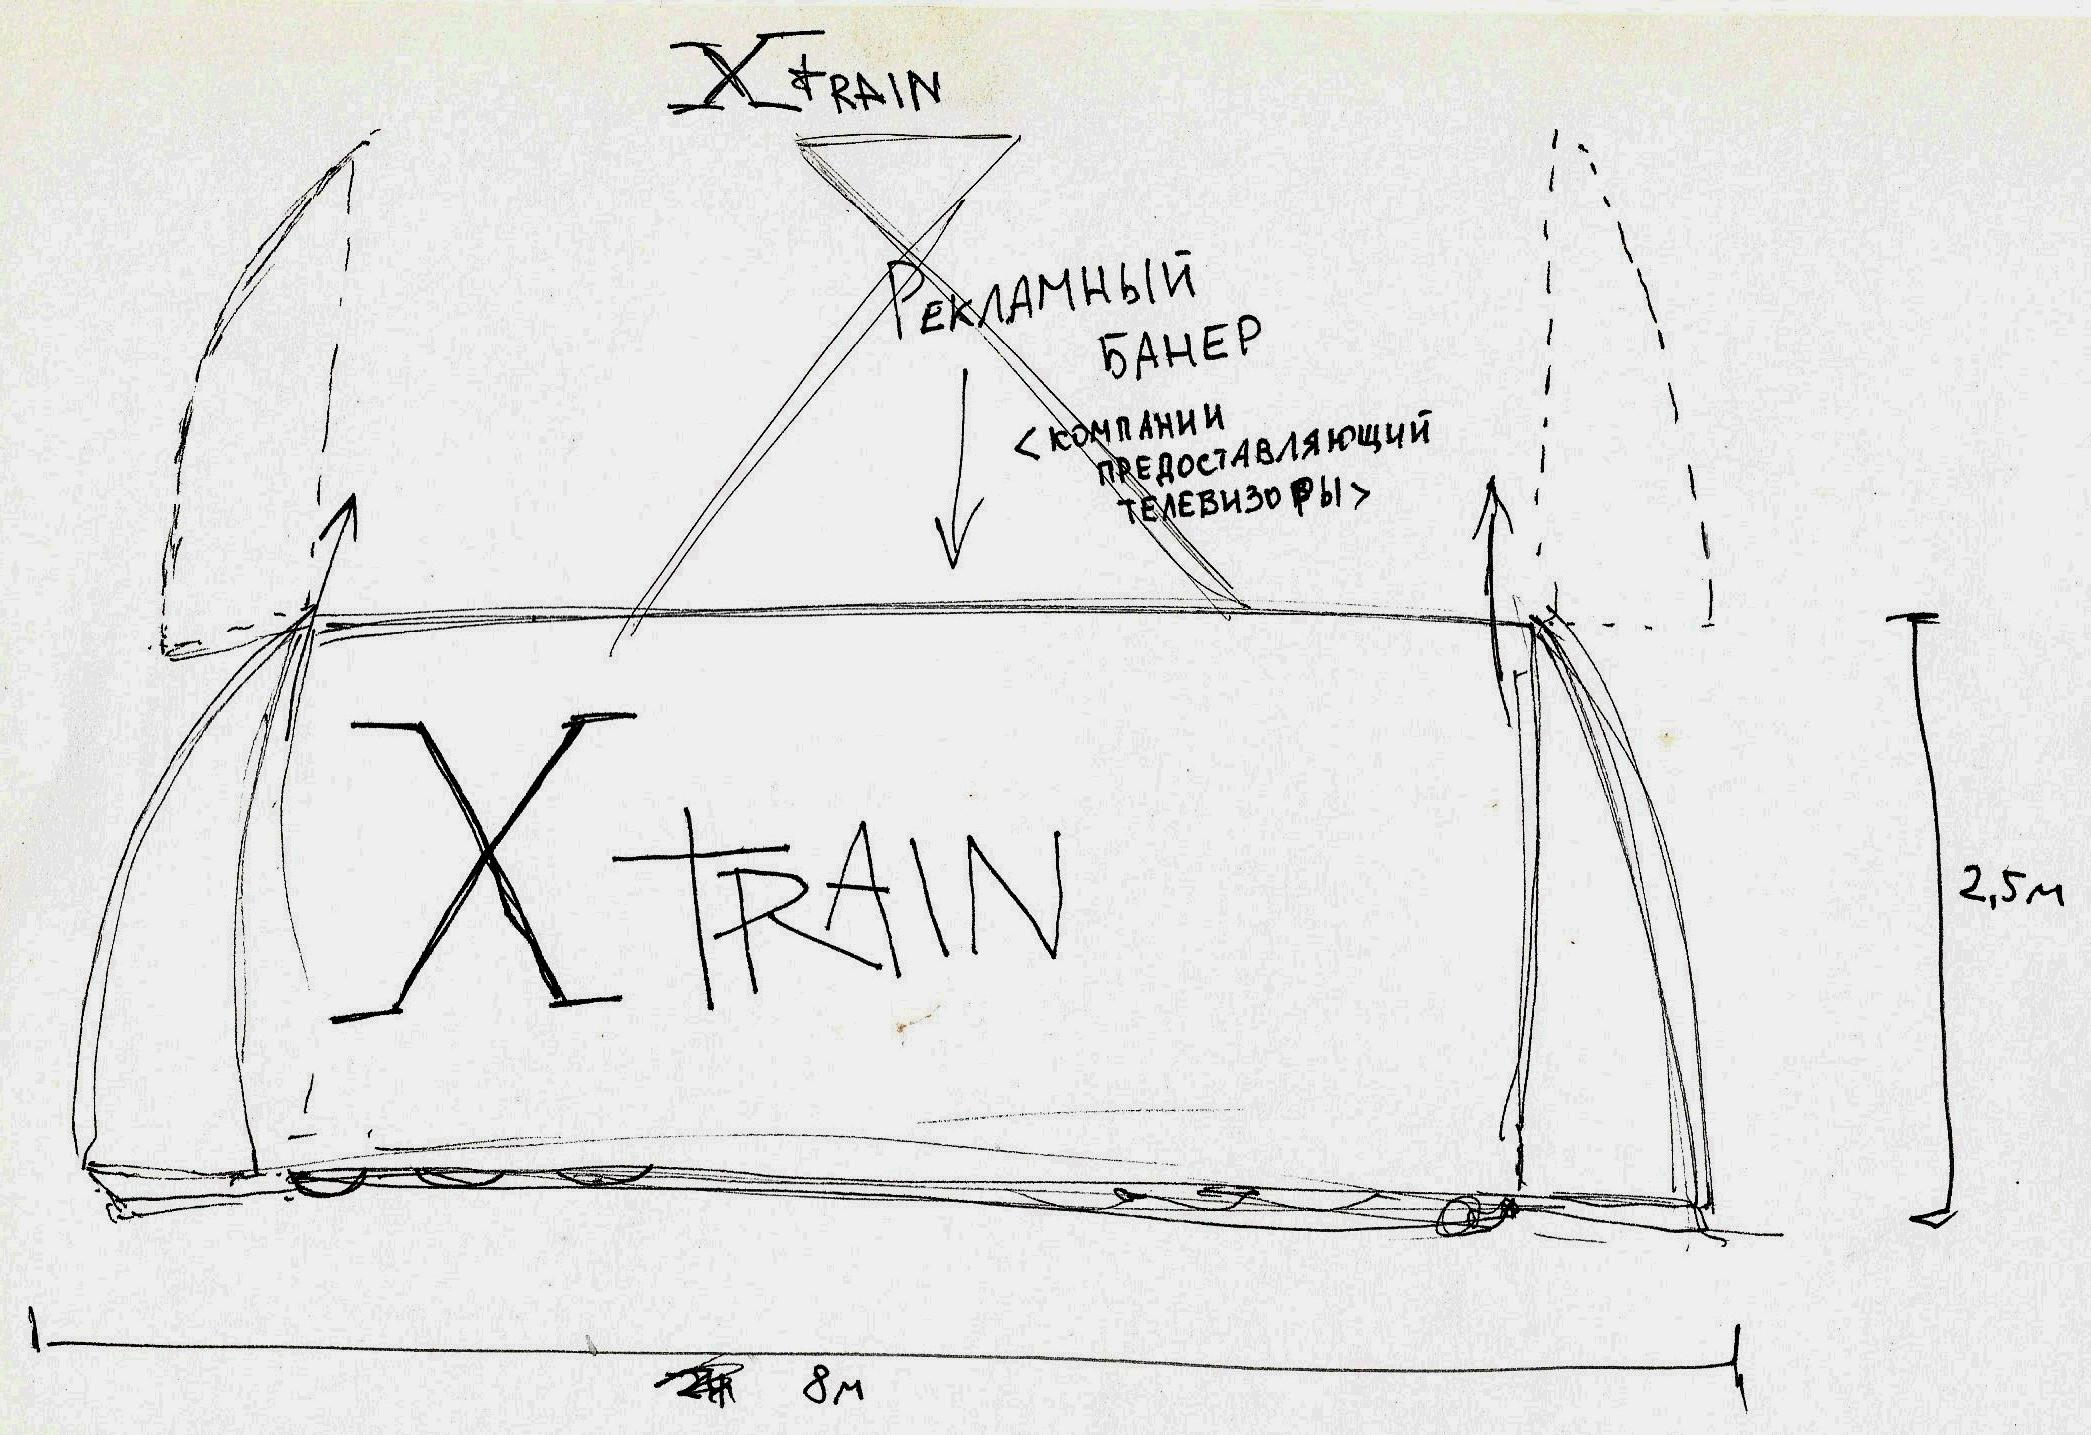 XtRAIN
РЕКЛАМНЫЙ
БАНЕР
<КОМПАНИИ
ПРЕДОСТАВЛЯЮЩИЙ
ТЕЛЕВИЗОРЫ>
XTRAIN
2,5м
8м